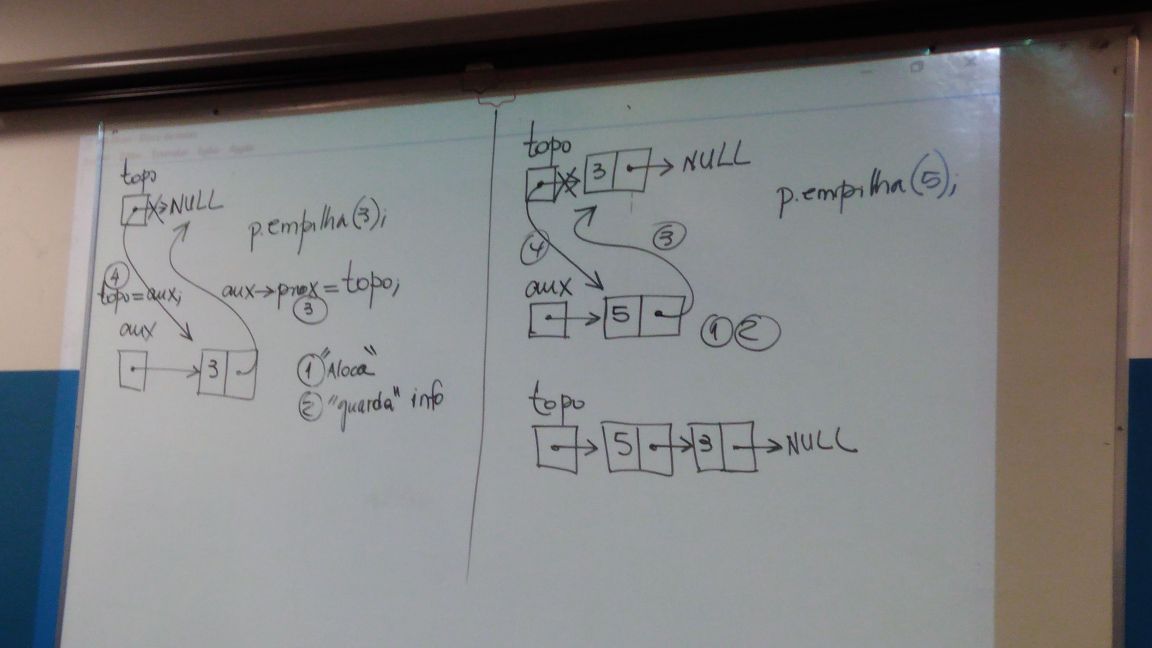 topo
NULL
p.empilha(3);
4
topo=aux;
aux→prox=topo;
3
aux
3
1 "Aloca"
2 "guarda" info
topo
3 → NULL
p.empilha(5);
4
3
aux
5
1 2
topo
→ 5 → 3 → NULL